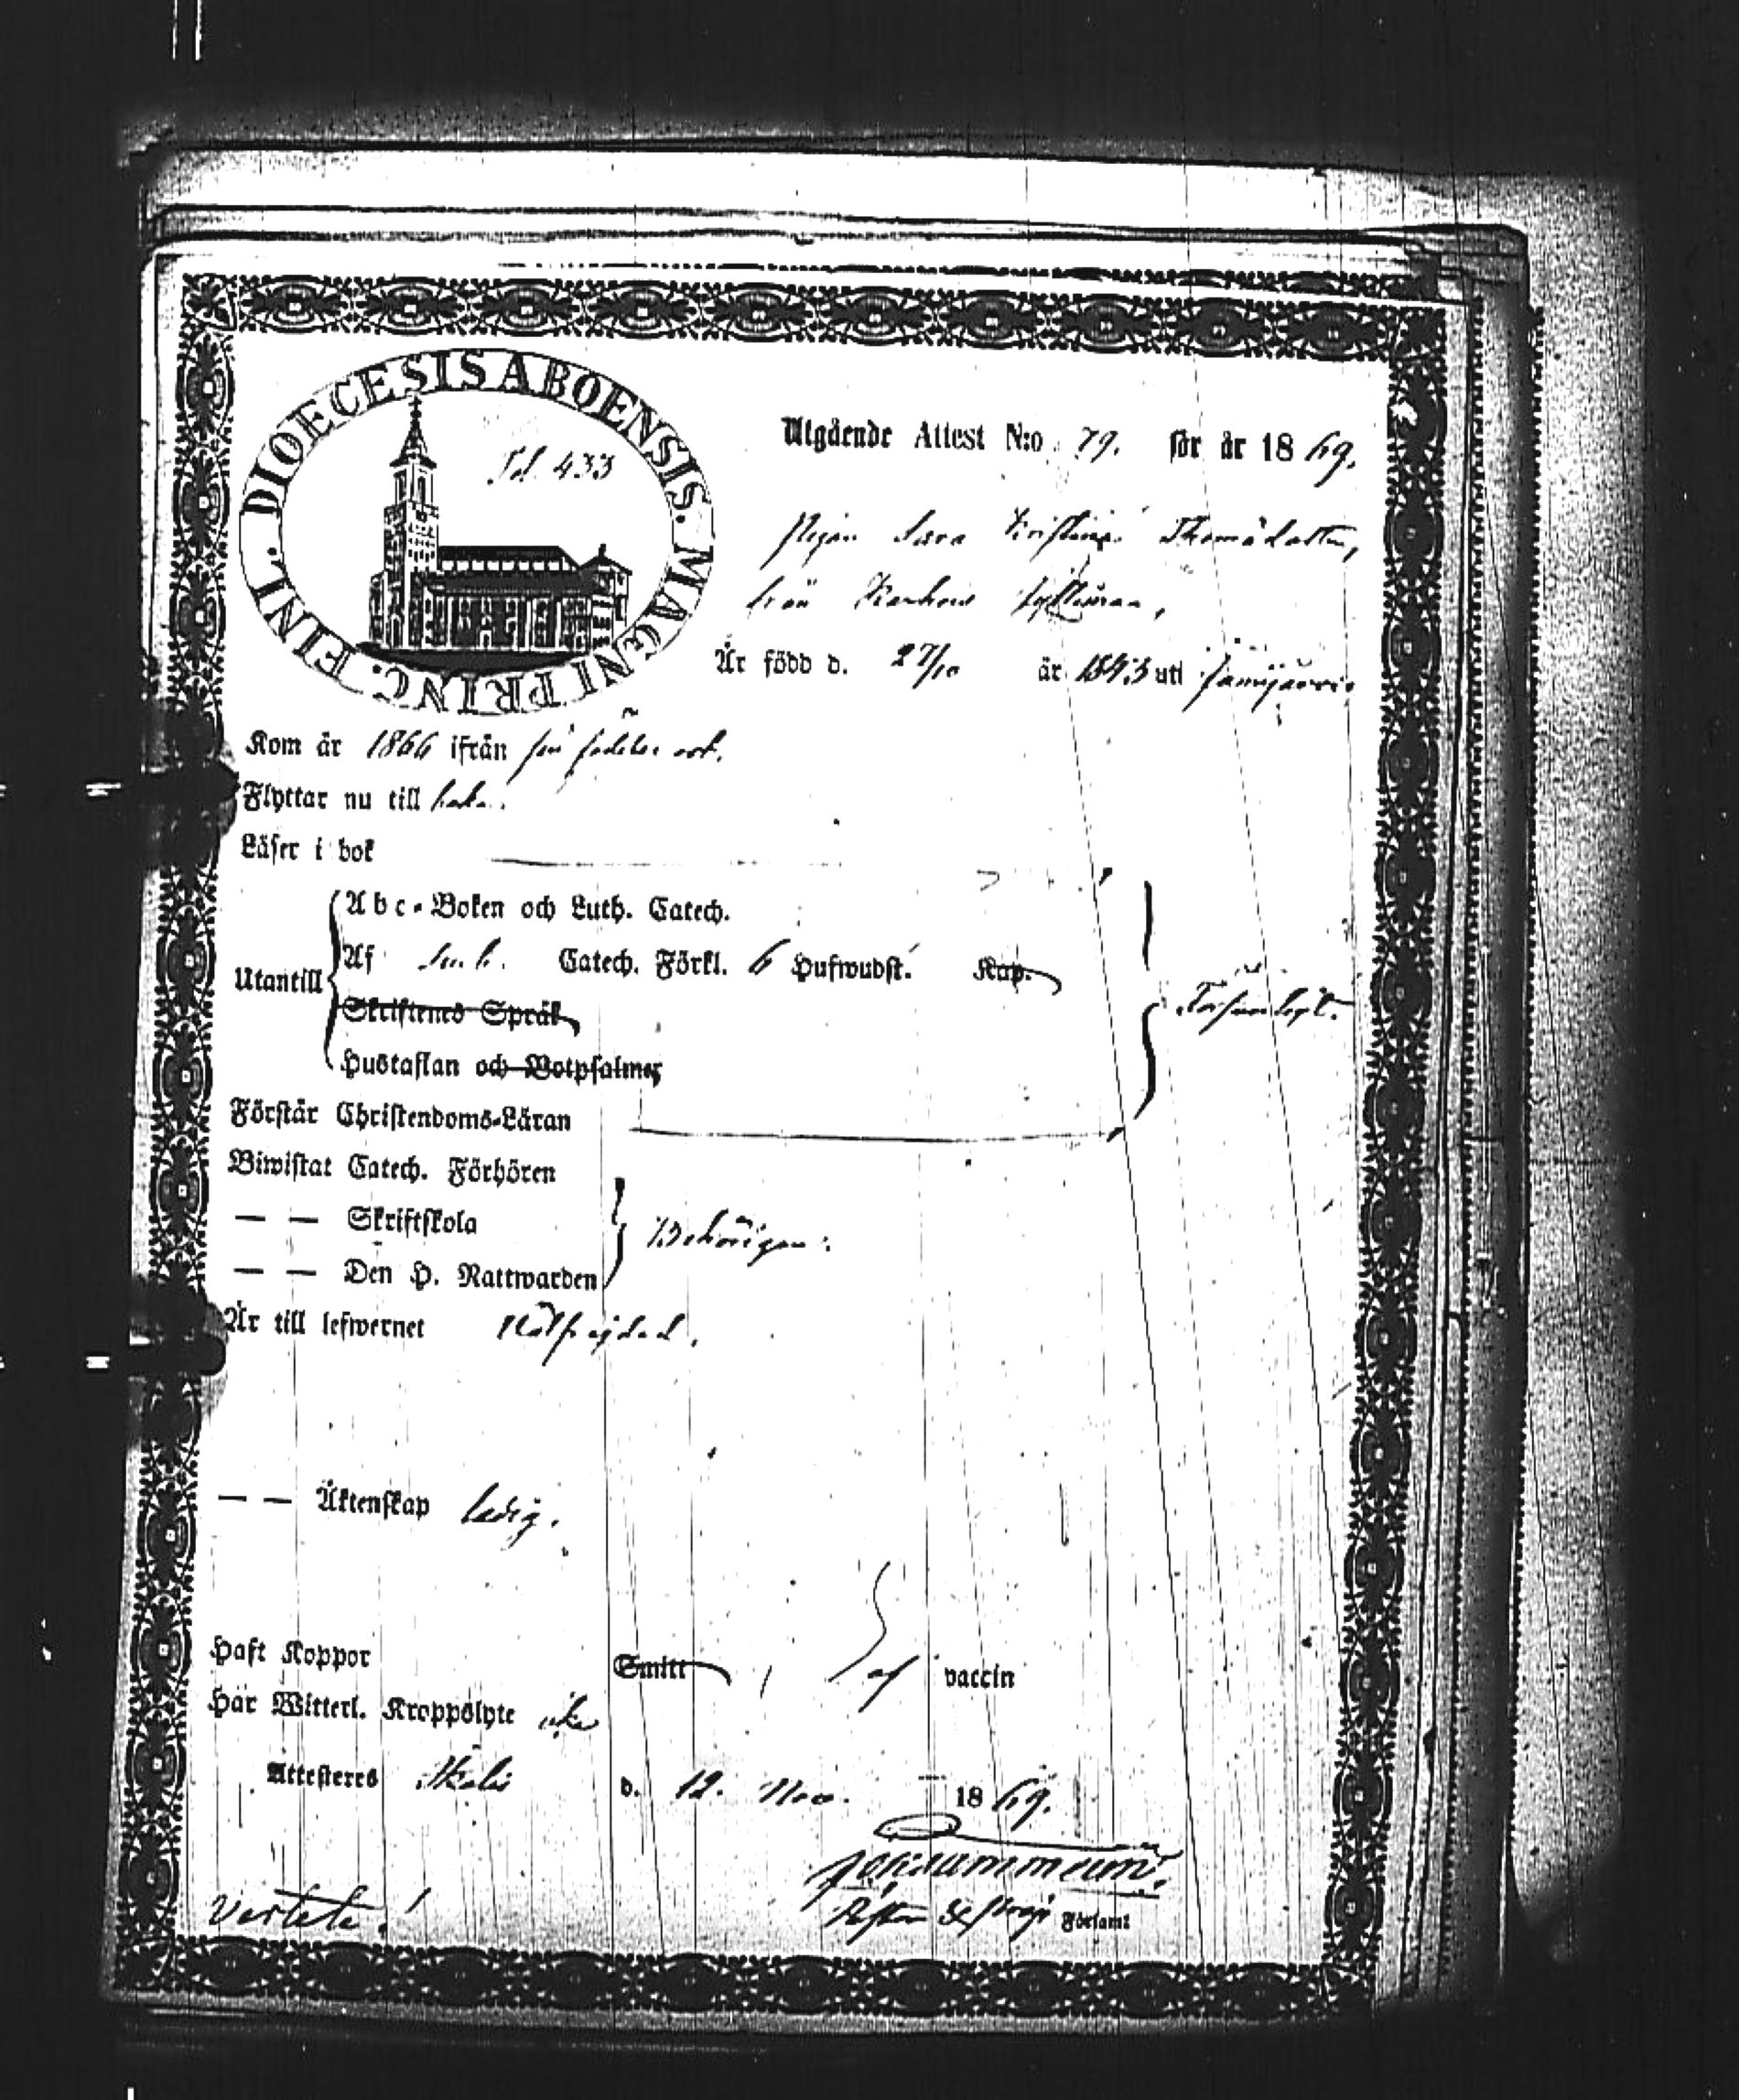 DIOECESIS ABOENSIS. MAGNI PRINC. FINL.
433
Utgående Attest N:o 79. för år 1869.
Pigan Sara Kristina Thomasdotter,
från
Är född d. 27/10 år 1843 uti Jämijärvi
Kom år 1866 ifrån sin födelse ort.
Flyttar nu till
Läser i bok
Utantill
Abc-Boken och Luth. Catech.
Af Catech. Förkl. 6 Hufwudst. Kap.
Skriftenes Språk
Hustaflan och Botpsalmer
Försvarligt.
Förstår Christendoms-Läran
Biwistat Catech. Förhören
— — Skriftskola
— — Den H. Nattwarden
Behörigen.
Är till lefwernet Välfrejdad.
— — Äktenskap ledig.
Haft Koppor Smitt af vaccin
Har Witterl. Kroppslyte icke
Attesteres d. 12. Nov. 1869.
Församl
Vertete!